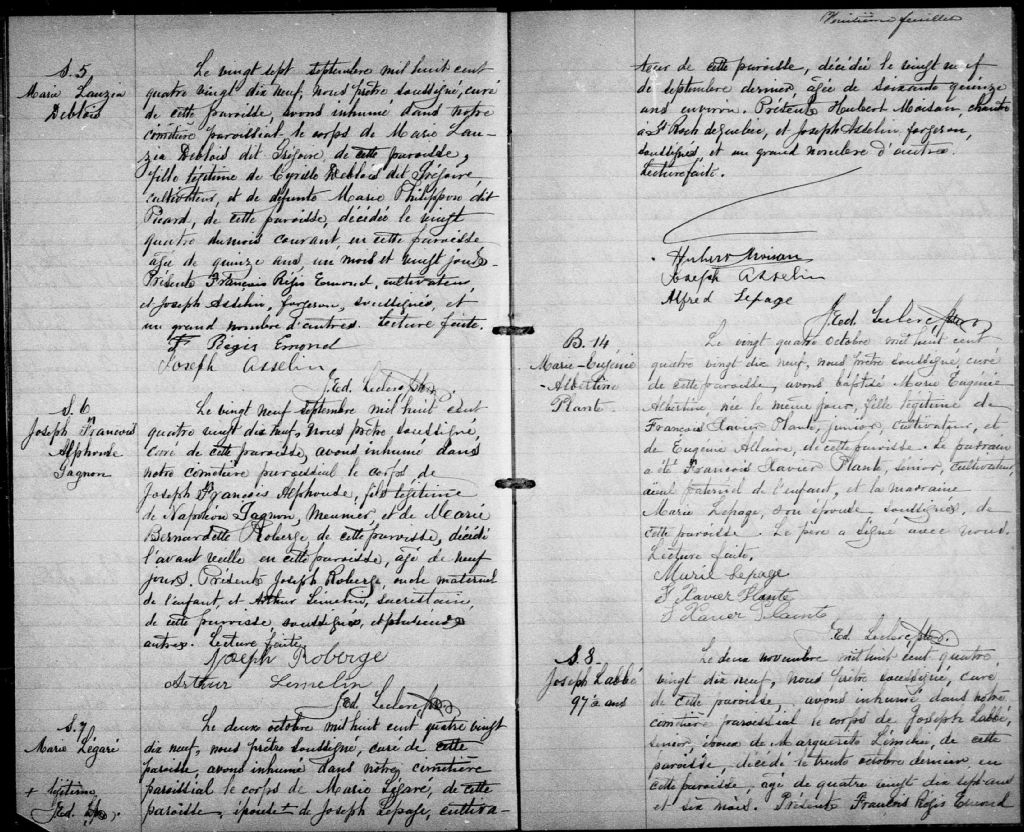 S. 5
Marie Lauzia
Deblois
Le vingt sept septembre mil huit cent
quatre vingt dix neuf, nous prêtre soussigné, curé
de cette paroisse, avons inhumé dans notre
cimetière paroissial le corps de Marie Lau-
zia Deblois dit Grégoire, de cette paroisse,
fille légitime de Cyrille Deblois dit Grégoire,
cultivateur, et de défunte Marie Philippon dit
Picard, de cette paroisse, décédée le vingt
quatre du mois courant, en cette paroisse
âgée de quinze ans un mois et vingt jours.
Présents François Régis Emond, cultivateur,
et Joseph Asselin, forgeron, soussignés, et
un grand nombre d'autres. Lecture faite.
F Régis Emond
Joseph Asselin
Ed. Leclerc Ptre
S. 6
Joseph François
Alphonse
Gagnon
Le vingt neuf septembre mil huit cent
quatre vingt dix neuf, nous prêtre soussigné,
curé de cette paroisse, avons inhumé dans
notre cimetière paroissial le corps de
Joseph François Alphonse, fils légitime
de Napoléon Gagnon, meunier, et de Marie
Bernardette Roberge de cette paroisse, décédé
l'avant veille en cette paroisse, âgé de neuf
jours. Présents Joseph Roberge, oncle maternel
de l'enfant, et Arthur Lemelin, sacristain,
de cette paroisse, soussignés, et plusieurs
autres. Lecture faite.
Joseph Roberge
Arthur Lemelin
Ed. Leclerc Ptre
S. 7
Marie Légaré
+ légitime
Ed. L. Ptre.
Le deux octobre mil huit cent quatre vingt
dix neuf, nous prêtre soussigné, curé de cette
paroisse, avons inhumé dans notre cimetière
paroissial le corps de Marie Légaré, de cette
paroisse, épouse+ de Joseph Lepage, cultiva-
feuillet
teur de cette paroisse, décédée le vingt neuf
de septembre dernier, âgée de soixante quinze
ans environ. Présents Hubert Moisan, chantre
à St Roch de Québec, et Joseph Asselin forgeron,
soussignés, et un grand nombre d'autres.
Lecture faite.
Hubert Moisan
Joseph Asselin
Alfred Lepage
Ed. Leclerc Ptre
B. 14
Marie-Eugénie
-Albertine
Plante.
Le vingt quatre octobre mil huit cent
quatre vingt dix neuf, nous prêtre soussigné, curé
de cette paroisse, avons baptisé Marie Eugénie
Albertine, née le même jour, fille légitime de
François Xavier Plante, junior, cultivateur, et
de Eugénie Allaire, de cette paroisse. Le parrain
a été François Xavier Plante, sénior, cultivateur,
aïeul paternel de l'enfant, et la marraine
Marie Lepage, son épouse soussignés, de
cette paroisse. Le père a signé avec nous.
Lecture faite.
Marie Lepage
F Xavier Plante
F Xavier Plante
Ed. Leclerc Ptre.
S. 8
Joseph Labbé
97 ½ ans
Le deux novembre mil huit cent quatre
vingt dix neuf, nous prêtre soussigné, curé
de cette paroisse, avons inhumé dans notre
cimetière paroissial le corps de Joseph Labbé,
senior, époux de Marguerite Lémelin, de cette
paroisse, décédé le trente octobre dernier, en
cette paroisse, âgé de quatre vingt dix sept ans
et six mois. Présents François Régis Emond